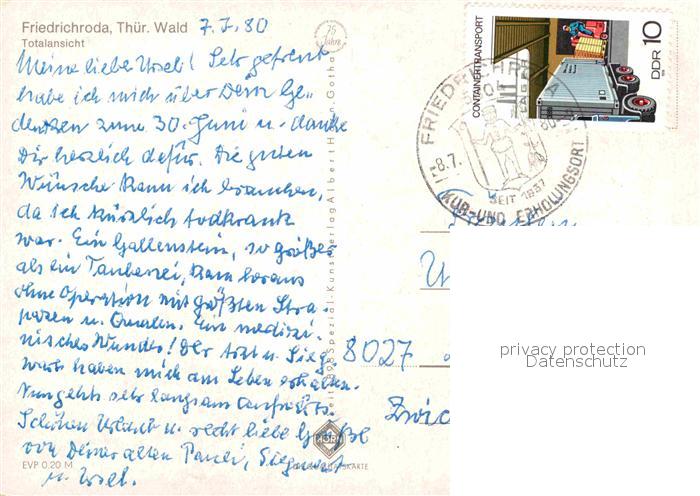 Friedrichroda, Thür. Wald 7.7.80
Totalansicht
Meine liebe Ursel! Sehr gefreut
habe ich mich über Dein Ge-
denken zum 30. Juni u. danke
Dir herzlich dafür. Die guten
Wünsche kann ich brauchen,
da ich kürzlich todkrank
war. Ein Gallenstein, so größer
als ein Taubenei, kam heraus
ohne Operation mit größten Stra-
pazen u. Qualen. Ein medizi-
nisches Wunder! Der Arzt u. Sieg-
ward haben mich am Leben erhalten.
Nun gehts sehr langsam aufwärts.
Schönen Urlaub u. recht liebe Grüße
von Deiner alten
u. Ursel.
EVP 0.20 M
75 Jahre
Spezial-Kunstverlag Albert Gotha
CONTAINERTRANSPORT
DDR 10
FRIEDRICHRODA
-8.7.
80
SEIT 1837
KUR-UND ERHOLUNGSORT
8027
privacy protection
Datenschutz